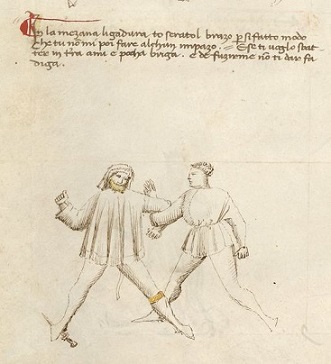 In la mezana ligadura to serato 'l brazo per sifatto modo
Che tu no mi poi fare alchun impazo. E se ti voglo sbat
ter in tera a mi e pocha briga. E de fuzirme no ti dar fa
diga.